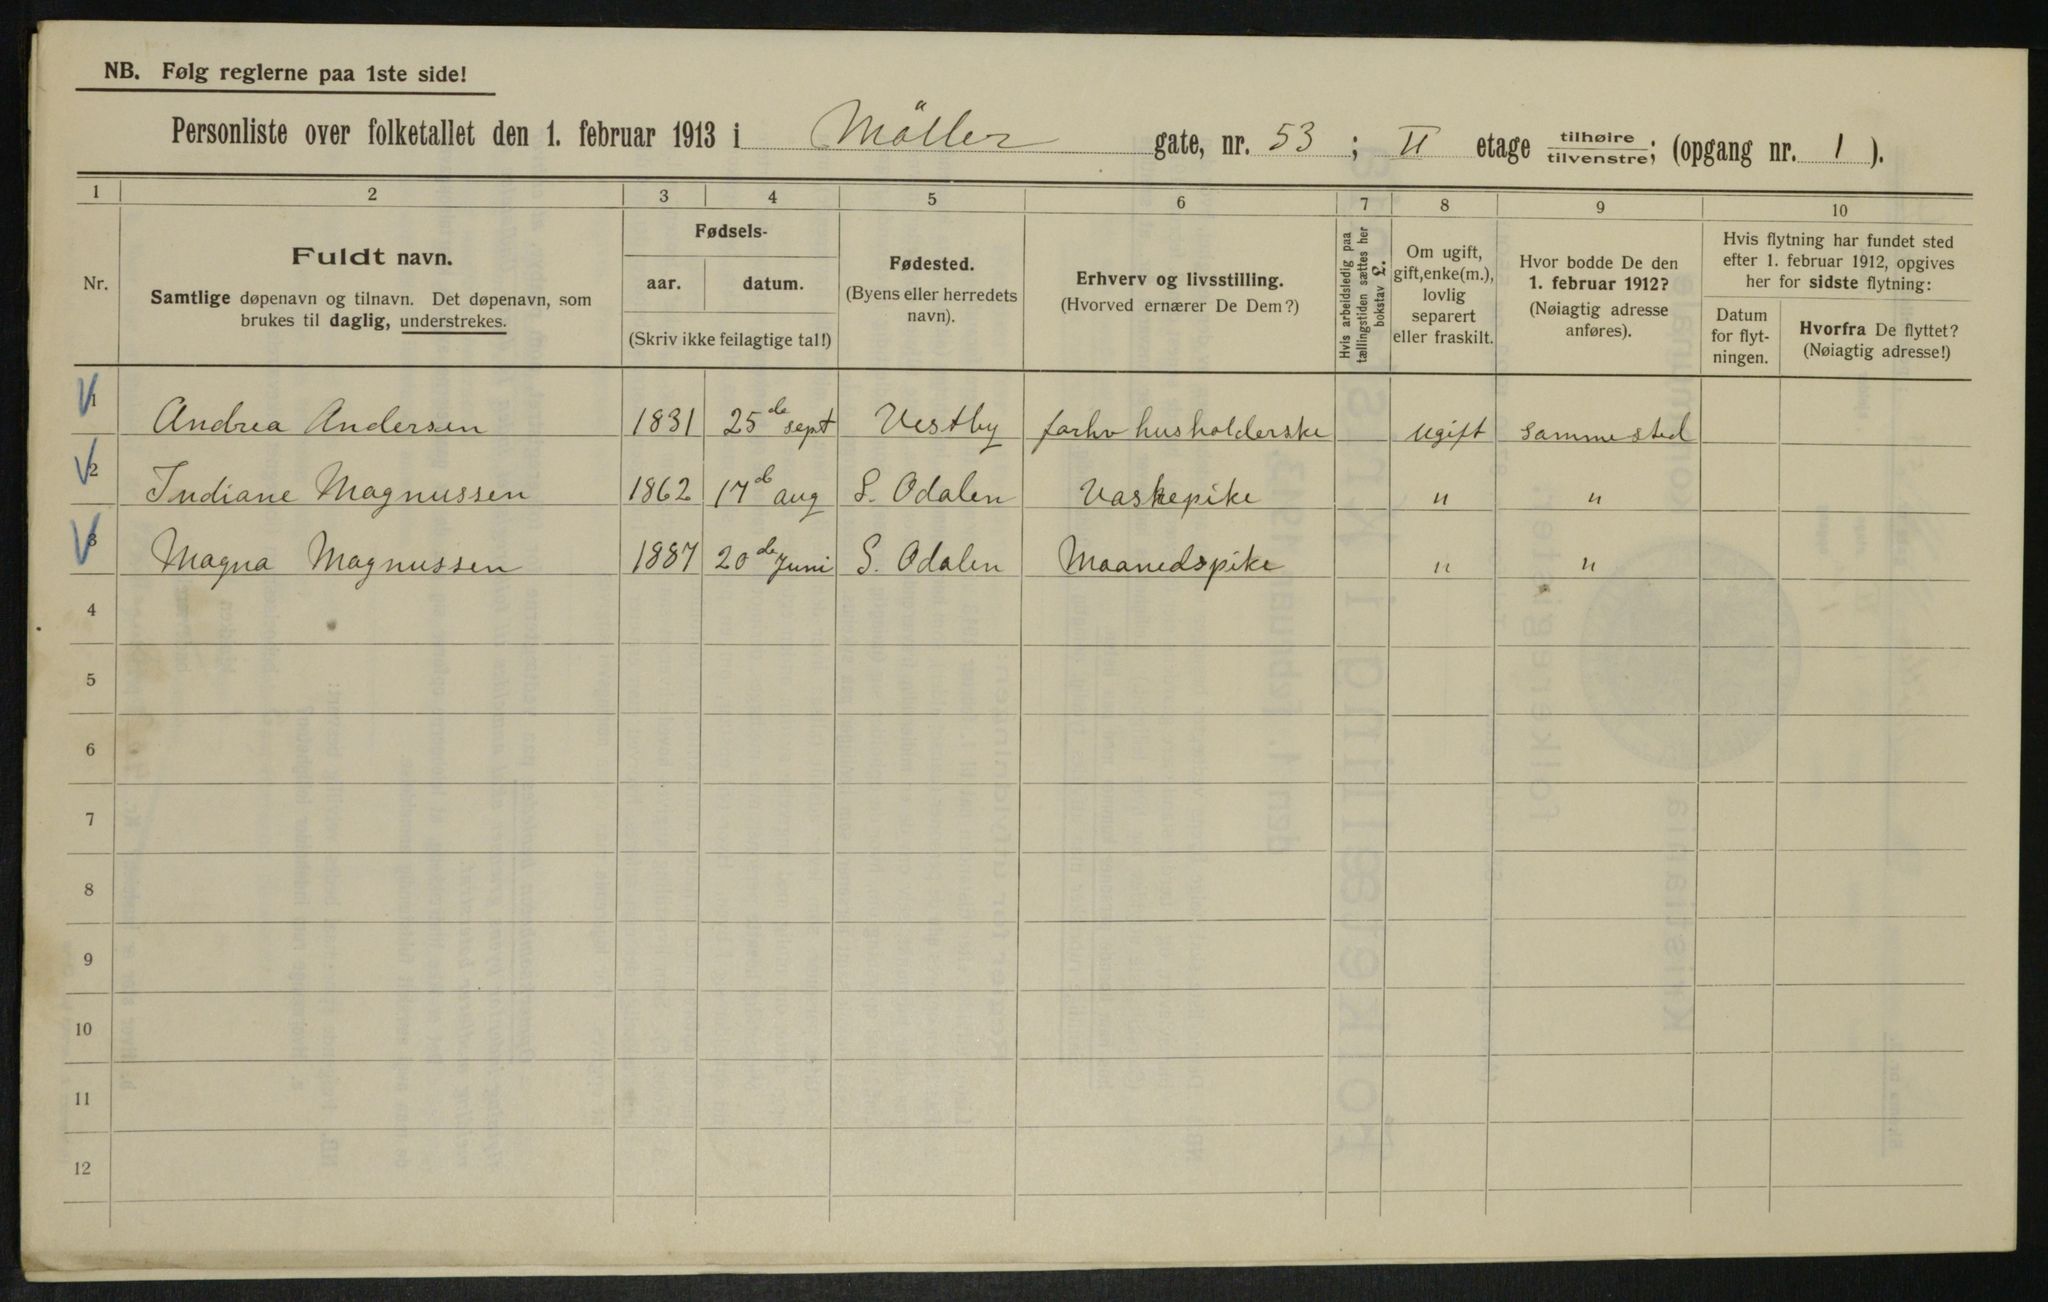 NB. Følg reglerne paa 1ste side!
Personliste over folketallet den 1. februar 1913 i Möller gate, nr. 53; II etage tilhøire/tilvenstre; (opgang nr. 1).
1 2 3 4 5 6 7 8 9 10
Nr.
Fuldt navn.
Samtlige døpenavn og tilnavn. Det døpenavn, som
brukes til daglig, understrekes.
Fødsels-
aar. datum.
(Skriv ikke feilagtige tal!)
Fødested.
(Byens eller herredets
navn).
Erhverv og livsstilling.
(Hvorved ernærer De Dem?)
Hvis arbeidsledig paa
tællingstiden sættes her
bokstav £.
Om ugift,
gift, enke(m.),
lovlig
separert
eller fraskilt.
Hvor bodde De den
1. februar 1912?
(Nøiagtig adresse
anføres).
Hvis flytning har fundet sted
efter 1. februar 1912, opgives
her for sidste flytning:
Datum
for flyt-
ningen.
Hvorfra De flyttet?
(Nøiagtig adresse!)
1 Andrea Andersen 1831 25de sept Vestby forhv husholderske ugift sammested
2 Indiane Magnussen 1862 17d aug S. Odalen Vaskepike " "
3 Magna Magnussen 1887 20de Juni S. Odalen Maanedspike " "
4
5
6
7
8
9
10
11
12